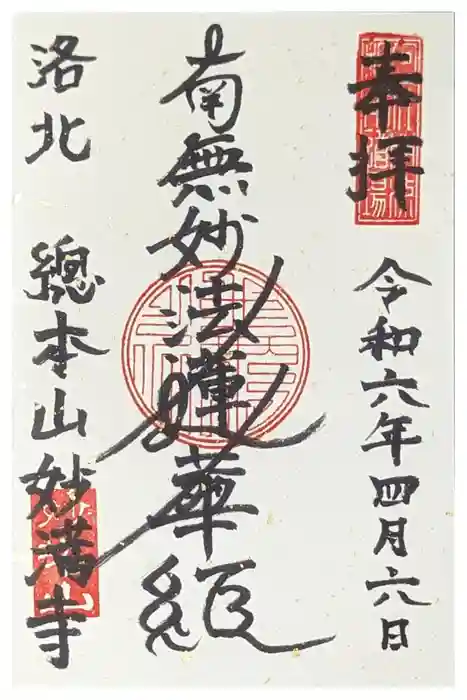 奉拝
令和六年四月六日
南無妙法蓮華経
洛北 總本山妙満寺